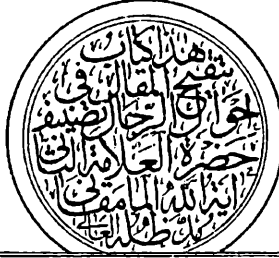 هذا كتاب
تنقيح المقال في
احوال الرجال تصنيف
حضرة العلامة الثاني
اية الله المامقاني
مد ظله العالي